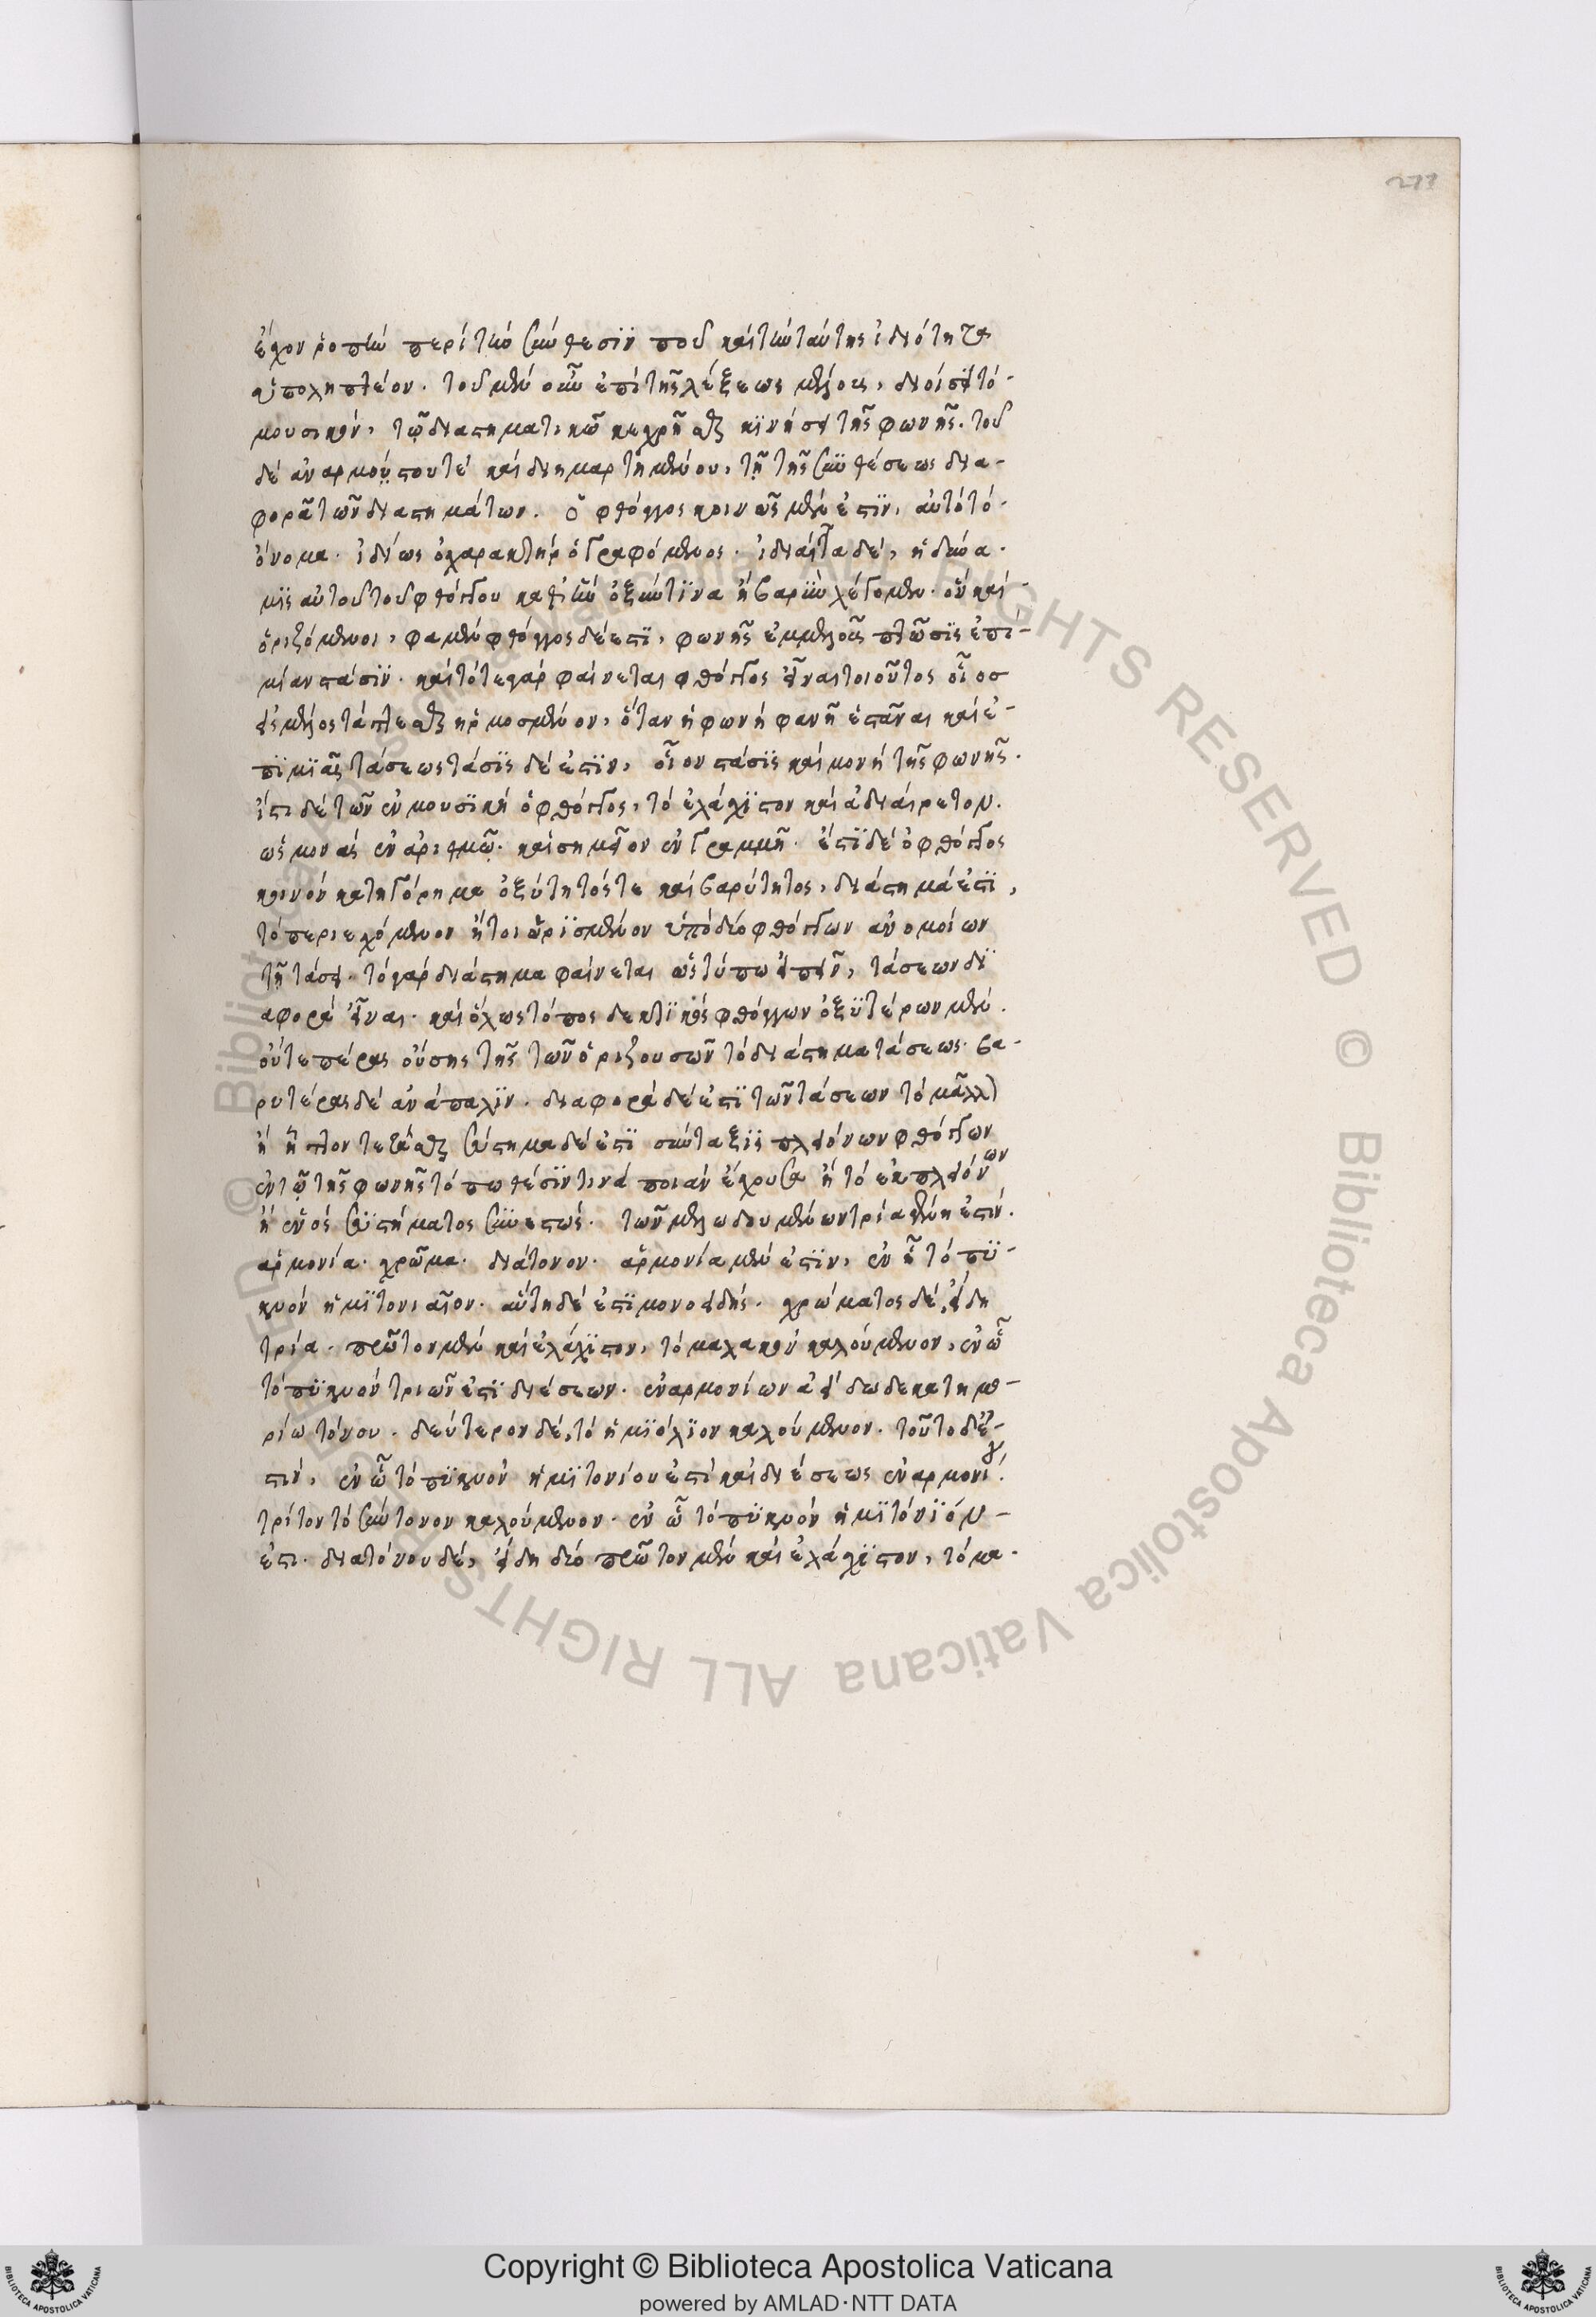 277
ἔχον ῥοπὴν περὶ τὴν σύνθεσιν που καὶ τὴν ταύτης ἰδιότητα
ὑποληπτέον. τοῦ μὲν οὖν ἐπὶ τῆς λέξεως μέλους, διοίσει τὸ
μουσικὸν, τῷ διαστηματικῷ κεχρῆσθαι κϊνήσει τῆς φωνῆς. τοῦ
δὲ ἀναρμόστου τὲ καὶ διημαρτημένου, τῇ τῆς συνθέσεως δια-
φορᾷ τῶν διαστημάτων. ὁ φθόγγος κοινῶς μέν ἐστϊν, αὐτὸ τὸ
ὄνομα. ἰδίως ὁ χαρακτὴρ ὁ γραφόμενος. ἰδιαίτατα δὲ, ἡ δύνα-
μϊς αὐτοῦ τοῦ φθόγγου καθ' ἣν ὀξύν τϊνα ἢ βαρϊὺν λέγομεν. ὃν καὶ
ὁριζόμενοι, φαμὲν φθόγγος δέ ἐστϊ, φωνῆς ἐμμελοῦς πτῶσϊς ἐπι-
μίαν στάσϊν. καὶ τότε γὰρ φαίνεται φθόγγος εἶναι τοιοῦτος οἷος
εἰς μέλος τάττεσθαι ἡρμοσμένον, ὅταν ἡ φωνὴ φανῇ ἑστάναι καὶ ἐ-
πὶ μϊᾶς τάσεως τάσϊς δέ ἐστϊν, οἷον στάσϊς καὶ μονὴ τῆς φωνῆς.
ἔστι δὲ τῶν ἐν μουσϊκῇ ὁ φθόγγος, τὸ ἐλάχϊστον καὶ ἀδιαίρετον.
ὡς μονὰς ἐν ἀριθμῷ. καὶ σημεῖον ἐν γραμμῇ. ἔστϊ δὲ ὁ φθόγγος
κοινὸν κατηγόρημα ὀξύτητός τε καὶ βαρύτητος, διάστημά ἐστϊ,
τὸ περιεχόμενον ἤτοι ὡρϊσμένον ὑπὸ δύο φθόγγων ἀνομοίων
τῇ τάσει. τὸ γὰρ διάστημα φαίνεται ὡς τύπῳ εἰπεῖν, τάσεων δϊ
αφορὰ εἶναι. καὶ ὅλως τόπος δεκτϊκὸς φθόγγων ὀξϋτέρων μὲν.
οὔτε πέρας οὔσης τῆς τῶν ὁριζουσῶν τὸ διάστημα τάσεως. βα-
ρυτέρας δὲ ἀνάπαλϊν. διαφορὰ δέ ἐστϊ τῶν τάσεων τὸ μᾶλλ)
ἢ ἧττον τετάσθαι σύστημα δέ ἐστϊ σύνταξϊς πλειόνων φθόγγων
ἐν τῷ τῆς φωνῆς τόπῳ θέσϊν τινὰ ποιὰν ἔχουσα ἢ τὸ ἐκ πλειόνων
ἢ ἑνὸς συστήματος συνεστώς. τῶν μελῳδουμένων τρία γένη ἐστίν.
ἁρμονία. χρῶμα. διάτονον. ἁρμονία μέν ἐστϊν, ἐν ᾗ τὸ πϋ-
κνὸν ἡμϊτονιαῖον. αὕτη δέ ἐστϊ μονοειδής. χρώματος δὲ, εἴδη
τρία. πρῶτον μὲν καὶ ἐλάχϊστον, τὸ μαλακὸν καλούμενον, ἐν ᾧ
τὸ πϋκνὸν τριῶν ἐστϊ διέσεων. ἐναρμονίων ἀεὶ δωδεκατημο-
ρίῳ τόνου. δεύτερον δὲ, τὸ ἡμϊόλϊον καλούμενον. τοῦτο δέ ἐσ-
τιν, ἐν ᾧ τὸ πϋκνὸν ἡμϊτονίου ἐστὶ καὶ διέσεως ἐναρμονίου.
τρίτον τὸ σύντονον καλούμενον. ἐν ᾧ τὸ πϋκνὸν ἡμϊτόνϊόν-
ἐστι. διατόνου δὲ, εἴδη δύο πρῶτον μὲν καὶ ἐλάχϊστον, τὸ μα-
Copyright © Biblioteca Apostolica Vaticana
powered by AMLAD·NTT DATA